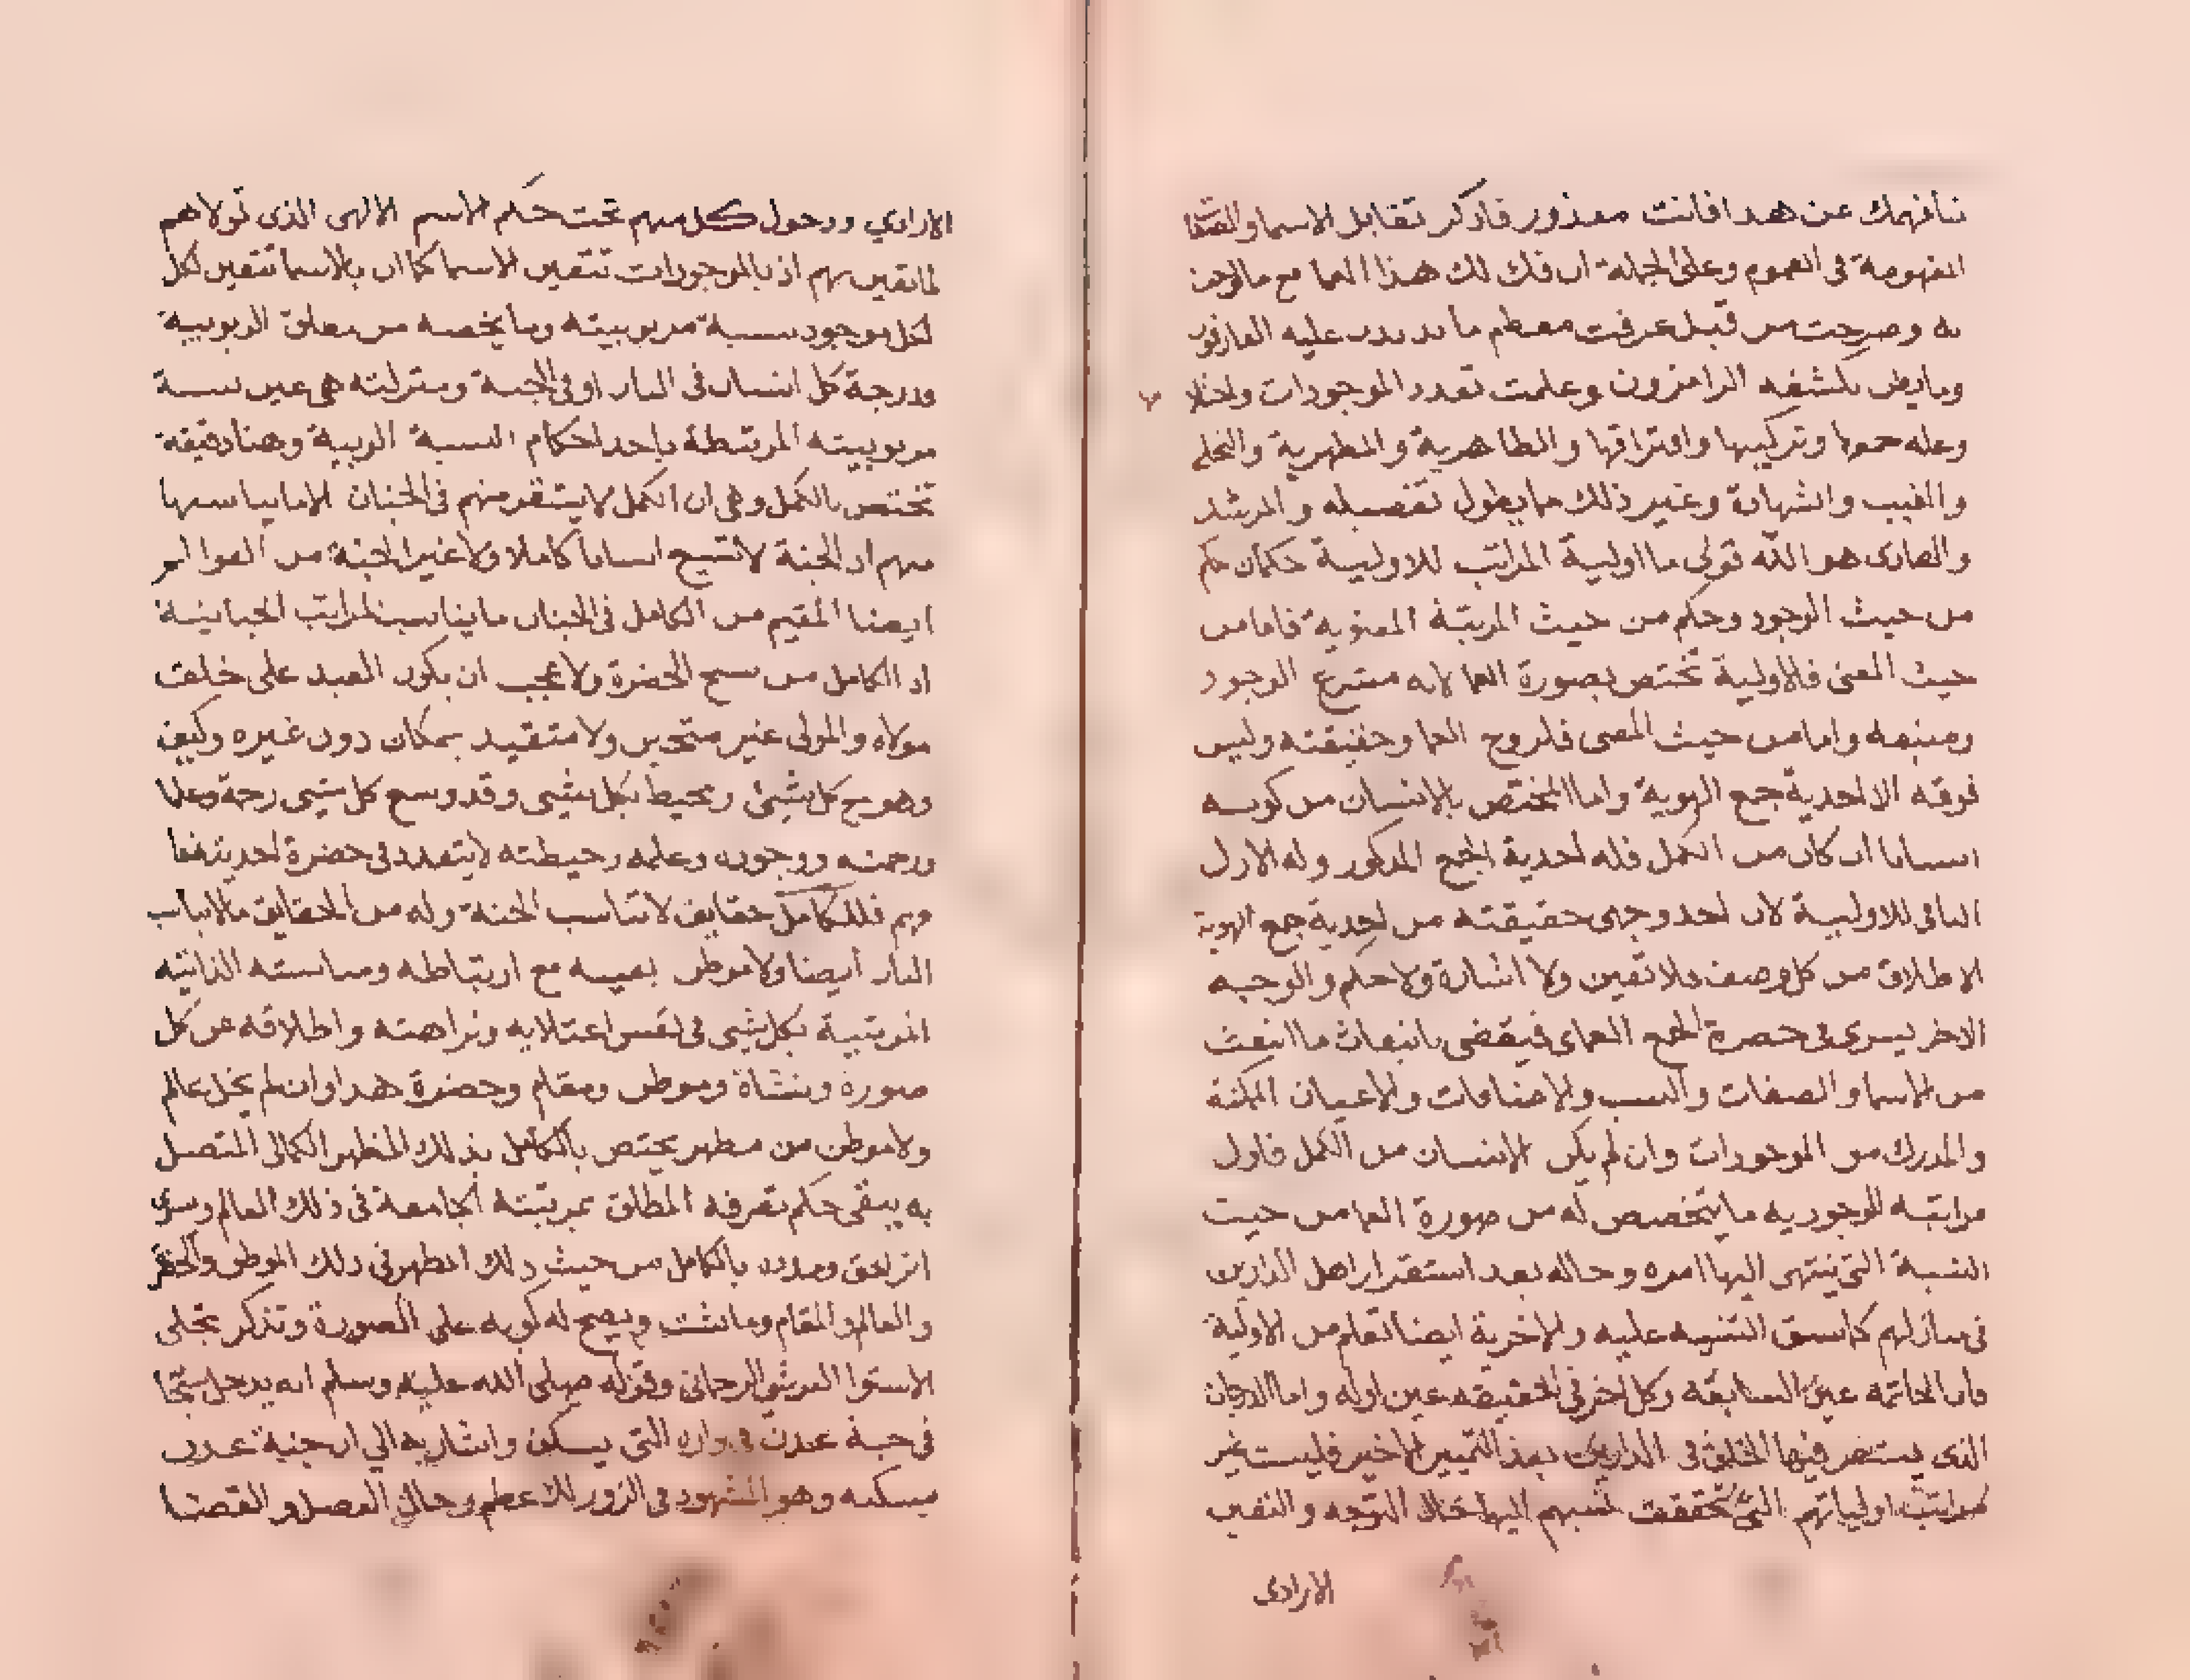 فافهمك عن هدا فانت معذور فاذكر تقابل الاسما والصفات
المفهومة فى العموم وعلى الجملة ان فك لك هذا العما مع مالوحت
به وصرحت من قبل عرفت معظم ما يدندن عليه العارفون
وما يظن بكشفه الرامزون وعلمت تعدد الموجودات واختلا
وعله جمعها وتركيبها وافتراقها والظاهرية والمظهرية والتجلى
والغيب والشهادة وغير ذلك مما يطول تفصيله والمرشد
والهادى هو الله تولى ما اولية المراتب للاولية حكمان حكم
من حيث الوجود وحكم من حيث المرتبة المعنوية فاما من
حيث المعنى فالاولية تختص بصورة العما لانه مشرع الوجود
ومنبعه واما من حيث المعنى فلروح العما وحقيقته وليس
فوقه الا احدية جمع الهوية واما المختص بالانسان من كونه
انسانا ان كان من الكمل فله احدية الجمع المذكور وله الاول
النافى للاولية لان احد وجهى حقيقته من احدية جمع الهوية
الاطلاق من كل وصف فلا تعين ولا اشارة ولا حكم والوجه
الاخر يسرى فى حضرة الجمع العماى فيقضى بانبعاث ما انبعث
من الاسما والصفات والنسب والاضافات والاعيان الممكنة
والمدرك من الموجودات وان لم يكن الانسان من الكمل فاول
مراتبه الوجوديه ما يتخصص له من صورة العما من حيث
النسبة التى ينتهى اليها امره وحاله بعد استقرار اهل الدارين
فى منازلهم كما سبق التنبيه عليه والاخرية ايضا تعلم من الاولية
فان الخاتمة عين السابقة وكل اخر فى الحقيقة عين اوله واما الدرجات
الذى يستقر فيها الخلق فى الدارين بعد التمييز الاخير فليست غير
مراتب اولياتهم التى تحققت نسبهم اليها حال التوجه والتعين
الارادى
الارادي ودخول كل منهم تحت حكم الاسم الالهى الذى تولاهم
لما تعين بهم اذ بالموجودات تتعين الاسما كما ان بالاسما تتعين لكل
لكل موجود نسبة مربوبيته وما يخصه من مطلق الربوبية
ودرجة كل انسان فى النار او فى الجنة ومنزلته هى عين نسبة
مربوبيته المرتبطة باحد احكام النسبة الربية وهنا دقيقة
تختص بالكمل وهى ان الكمل لا يستقر منهم فى الجنان الا ما يناسبها
منهم اذ الجنة لا تسع انسانا كاملا ولا غير الجنة من العوالم
ايضا المقيم من الكامل فى الجنان ما يناسب المراتب الجنانية
اذ الكامل من نسخ الحضرة ولا عجب ان يكون العبد على خلق
مولاه والمولى غير متحيز ولا متقيد بمكان دون غيره وكيف
وهو مع كل شيئ ومحيط بكل شيى وقد وسع كل شيى رحمة وعلما
ورحمته ووجوده وعلمه وحيطته لا يتعدد فى حضرة احديته فما
وثم فللكامل حقايق لا تناسب الجنة وله من الحقايق ما لا يناسب
النار ايضا ولا موطن بعينه مع ارتباطه ومناسبته الذاتيه
المرتبية بكل شيى فى نفس اعتلايه ونزاهته واطلاقه عن كل
صورة ونشاة وموطن ومقام وحضرة هدا وان لم يخل عالم
ولا موطن من مظهر يختص بالكامل بذلك المظهر الكمالى المتصل
به يبقى حكم تصرفه المطلق بمرتبته الجامعة فى ذلك العالم وسرى
اثر الحق ومدده بالكامل من حيث ذلك المظهر فى ذلك الموطن والحضرة
والعالم والمقام وما شئت ويصح له كونه على الصورة وتذكر تجلى
الاستوا العرشى الرحمانى وقوله صلى الله عليه وسلم انه يدخل
فى جنة عدن فى داره التى يسكن واشاريه الي ان جنة عدن
مسكنه وهو المشهود فى الزور الاعظم وحال الفصل والقضا